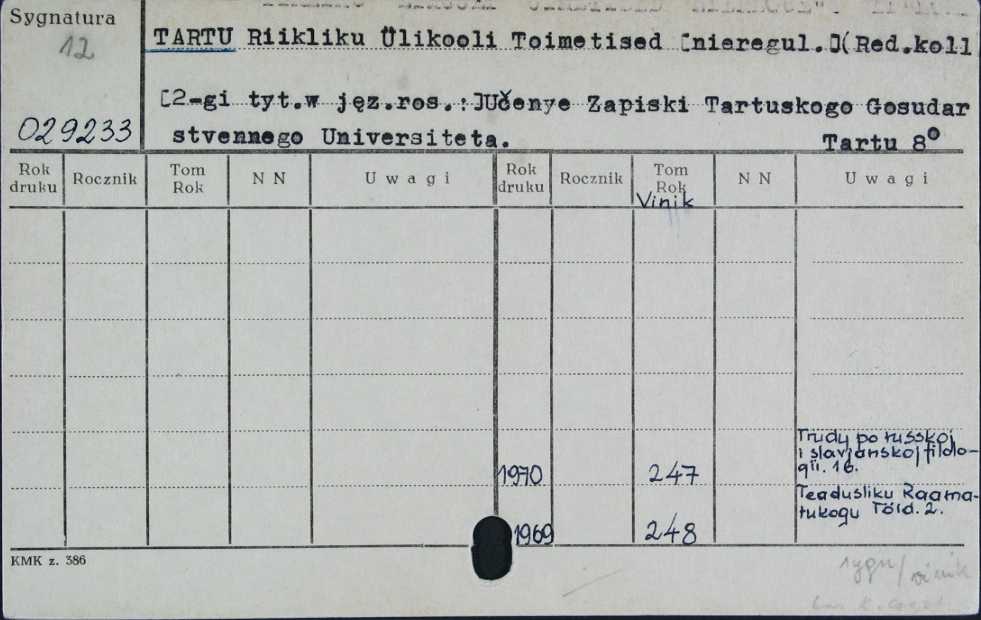 Sygnatura
12
TARTU Riikliku Ülikooli Toimetised [nieregul.](Red.koll
[2-gi tyt.w jęz.ros.:]Učenye Zapiski Tartuskogo Gosudar
029233
stvennego Universiteta. Tartu 8º
Rok druku Rocznik Tom Rok N N Uwagi Rok druku Rocznik Tom Rok N N Uwagi
Vihik
1970 247 Trudy po russkoj
i slavjanskoj filolo-
gii. 16.
1969 248 Teadusliku Raama-
tukogu Tööd. 2.
KMK z. 386
sygn/